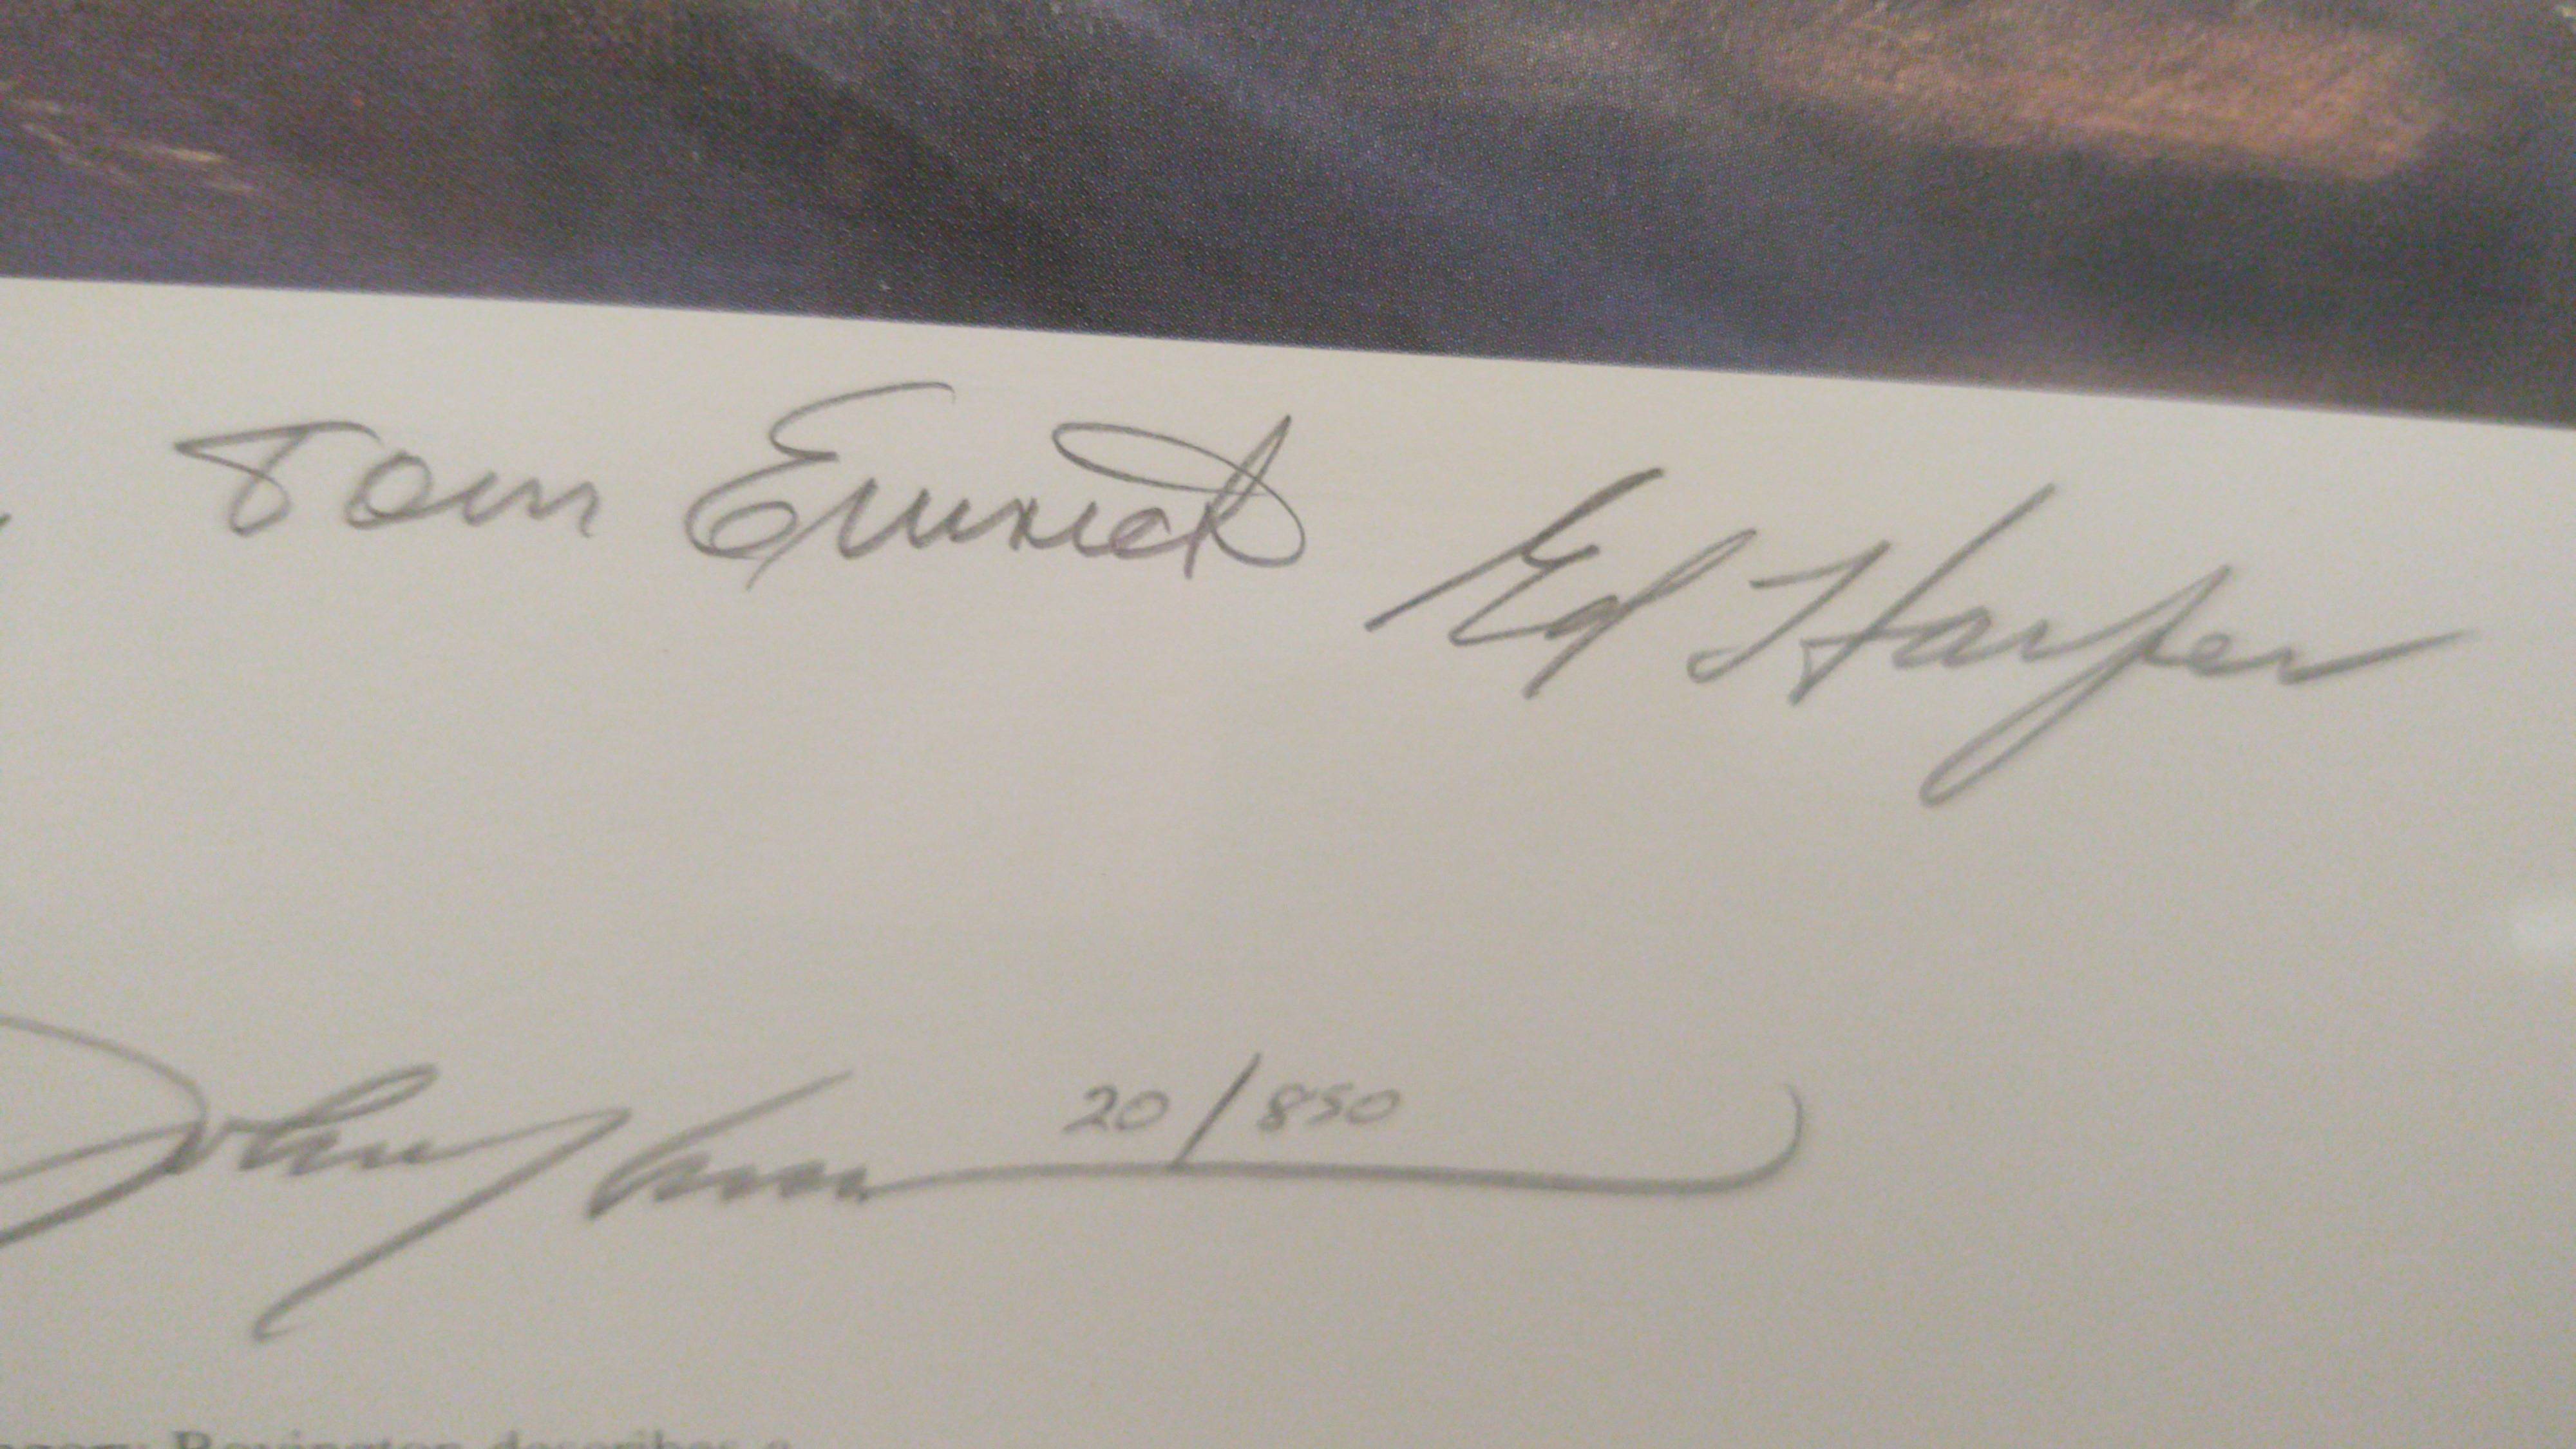 Tom Emrich Ed Harper
John Shaw 20/850
Boyington describes a